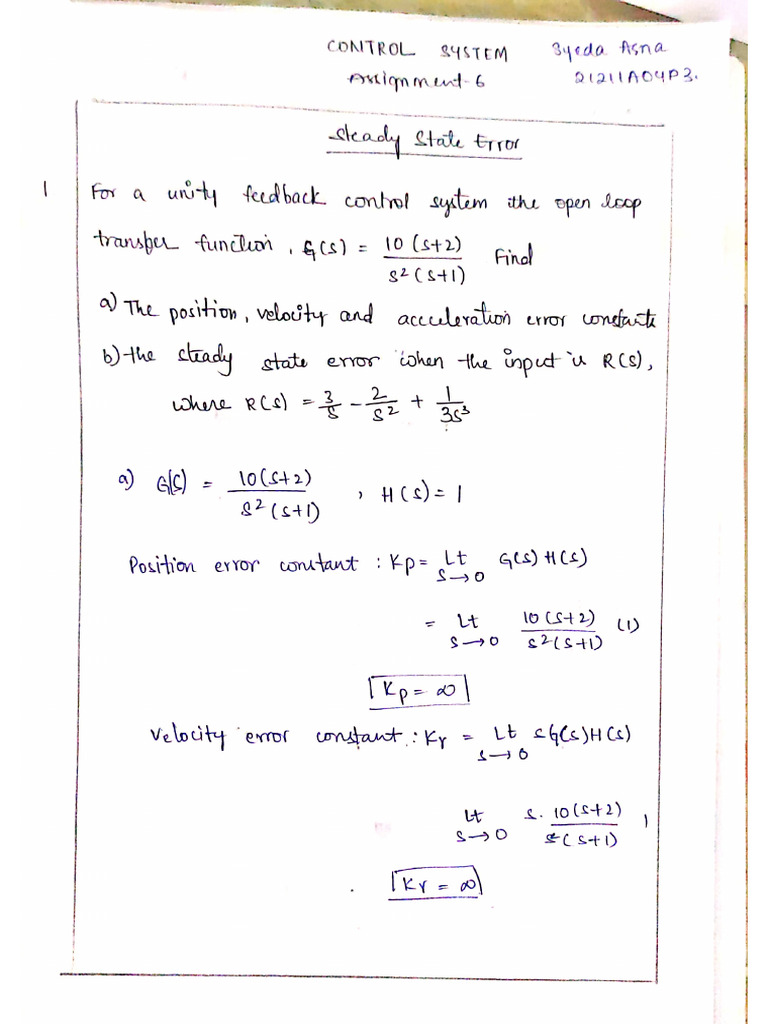 CONTROL SYSTEM Syeda Asna
Assignment-6 21211A04P3.
Steady State Error
1 For a unity feedback control system the open loop
transfer function, G(s) = 10(s+2) / s²(s+1) Find
a) The position, velocity and acceleration error constants
b) the steady state error when the input is R(s),
where R(s) = 3/s - 2/s² + 1/3s³
a) G(s) = 10(s+2) / s²(s+1) , H(s) = 1
Position error constant : Kp = Lt s→0 G(s) H(s)
= Lt s→0 10(s+2) / s²(s+1) (1)
Kp = ∞
Velocity error constant : Kr = Lt s→0 sG(s)H(s)
Lt s→0 s. 10(s+2) / s²(s+1) 1
Kr = ∞